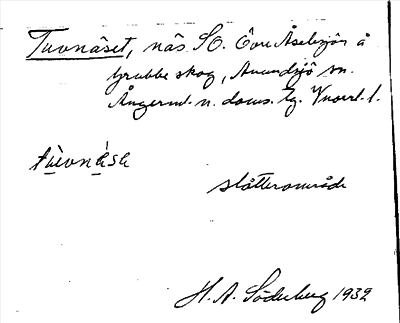 Tuvnäset, näs SO. Övre Åselesjön å
Grubbe skog, Anundsjö sn.
Ångerml. n. doms. tg. Vnorrl. l.
tùevnèsɛ
slåtterområde
H. A. Söderberg 1932